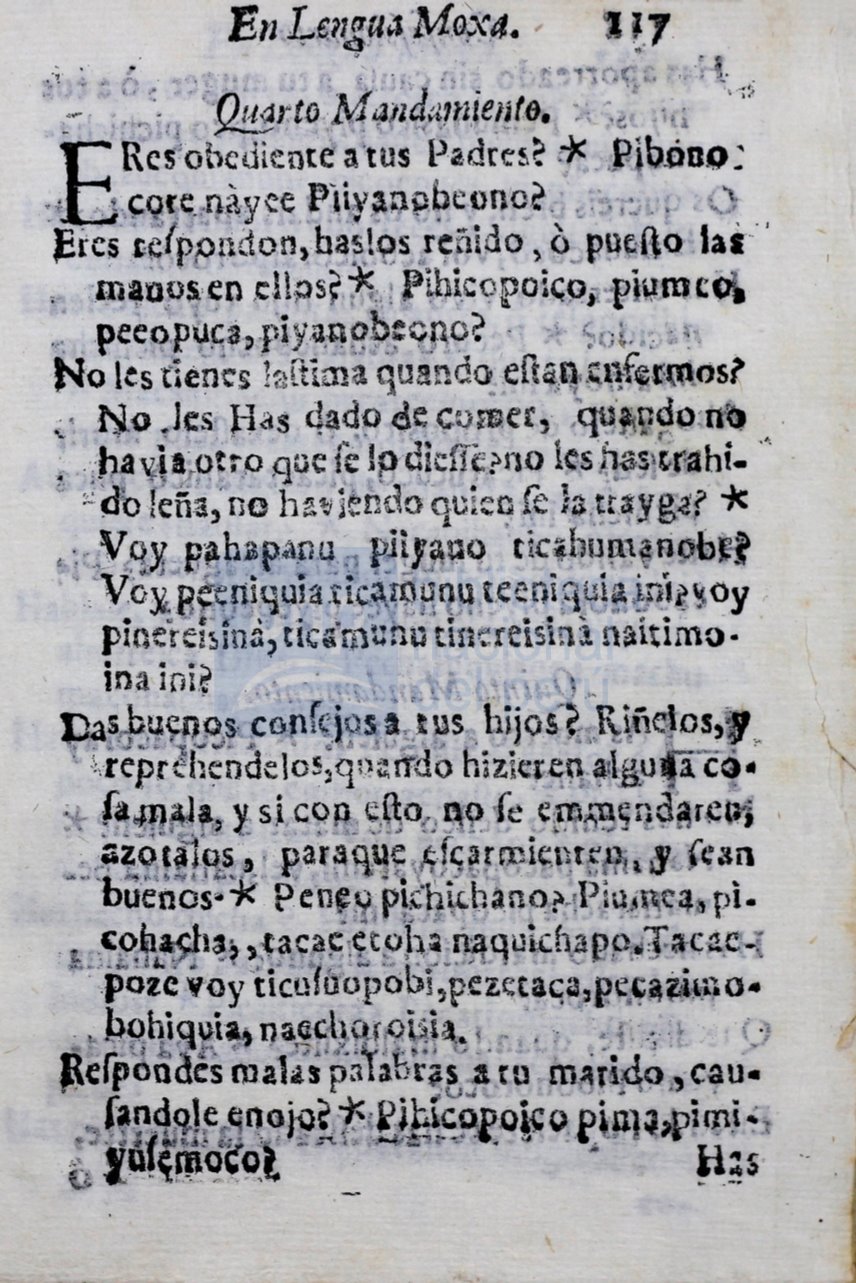 En Lengua Moxa. 117
Quarto Mandamiento.
ERes obediente a tus Padres? * Pibono-
core nàyee Piiyanobeono?
Eres reſpondon, haslos reñido, ò pueſto las
manos en ellos? * Pihicopoico, piumco,
peeopuca, piyanobeono?
No les tienes laſtima quando eſtan enfermos?
No les Has dado de comer, quando no
havia otro que ſe lo dieſſe? no les has trahi-
do leña, no haviendo quien ſe la trayga? *
Voy pahapanu piiyano ticahumanobe?
Voy peeniquia ticamunu teeniquia ini? voy
pinereisinà, ticamunu tinereisinà naitimo-
ina ini?
Das buenos conſejos a tus hijos? Riñelos, y
reprehendelos, quando hizieren alguna co-
ſa mala, y si con eſto no ſe emmendaren,
azotalos, paraque eſcarmienten, y ſean
buenos. * Peneo pichichano? Piumca, pi-
cohacha, , tacac etoha naquichapo. Tacac-
poze voy ticuſuopobi, pezetaca, pecazimo-
bohiquia, naechoroisia.
Reſpondes malas palabras a tu marido, cau-
ſandole enojo? * Pihicopoico pima, pimi-
yuſemoco?
Has